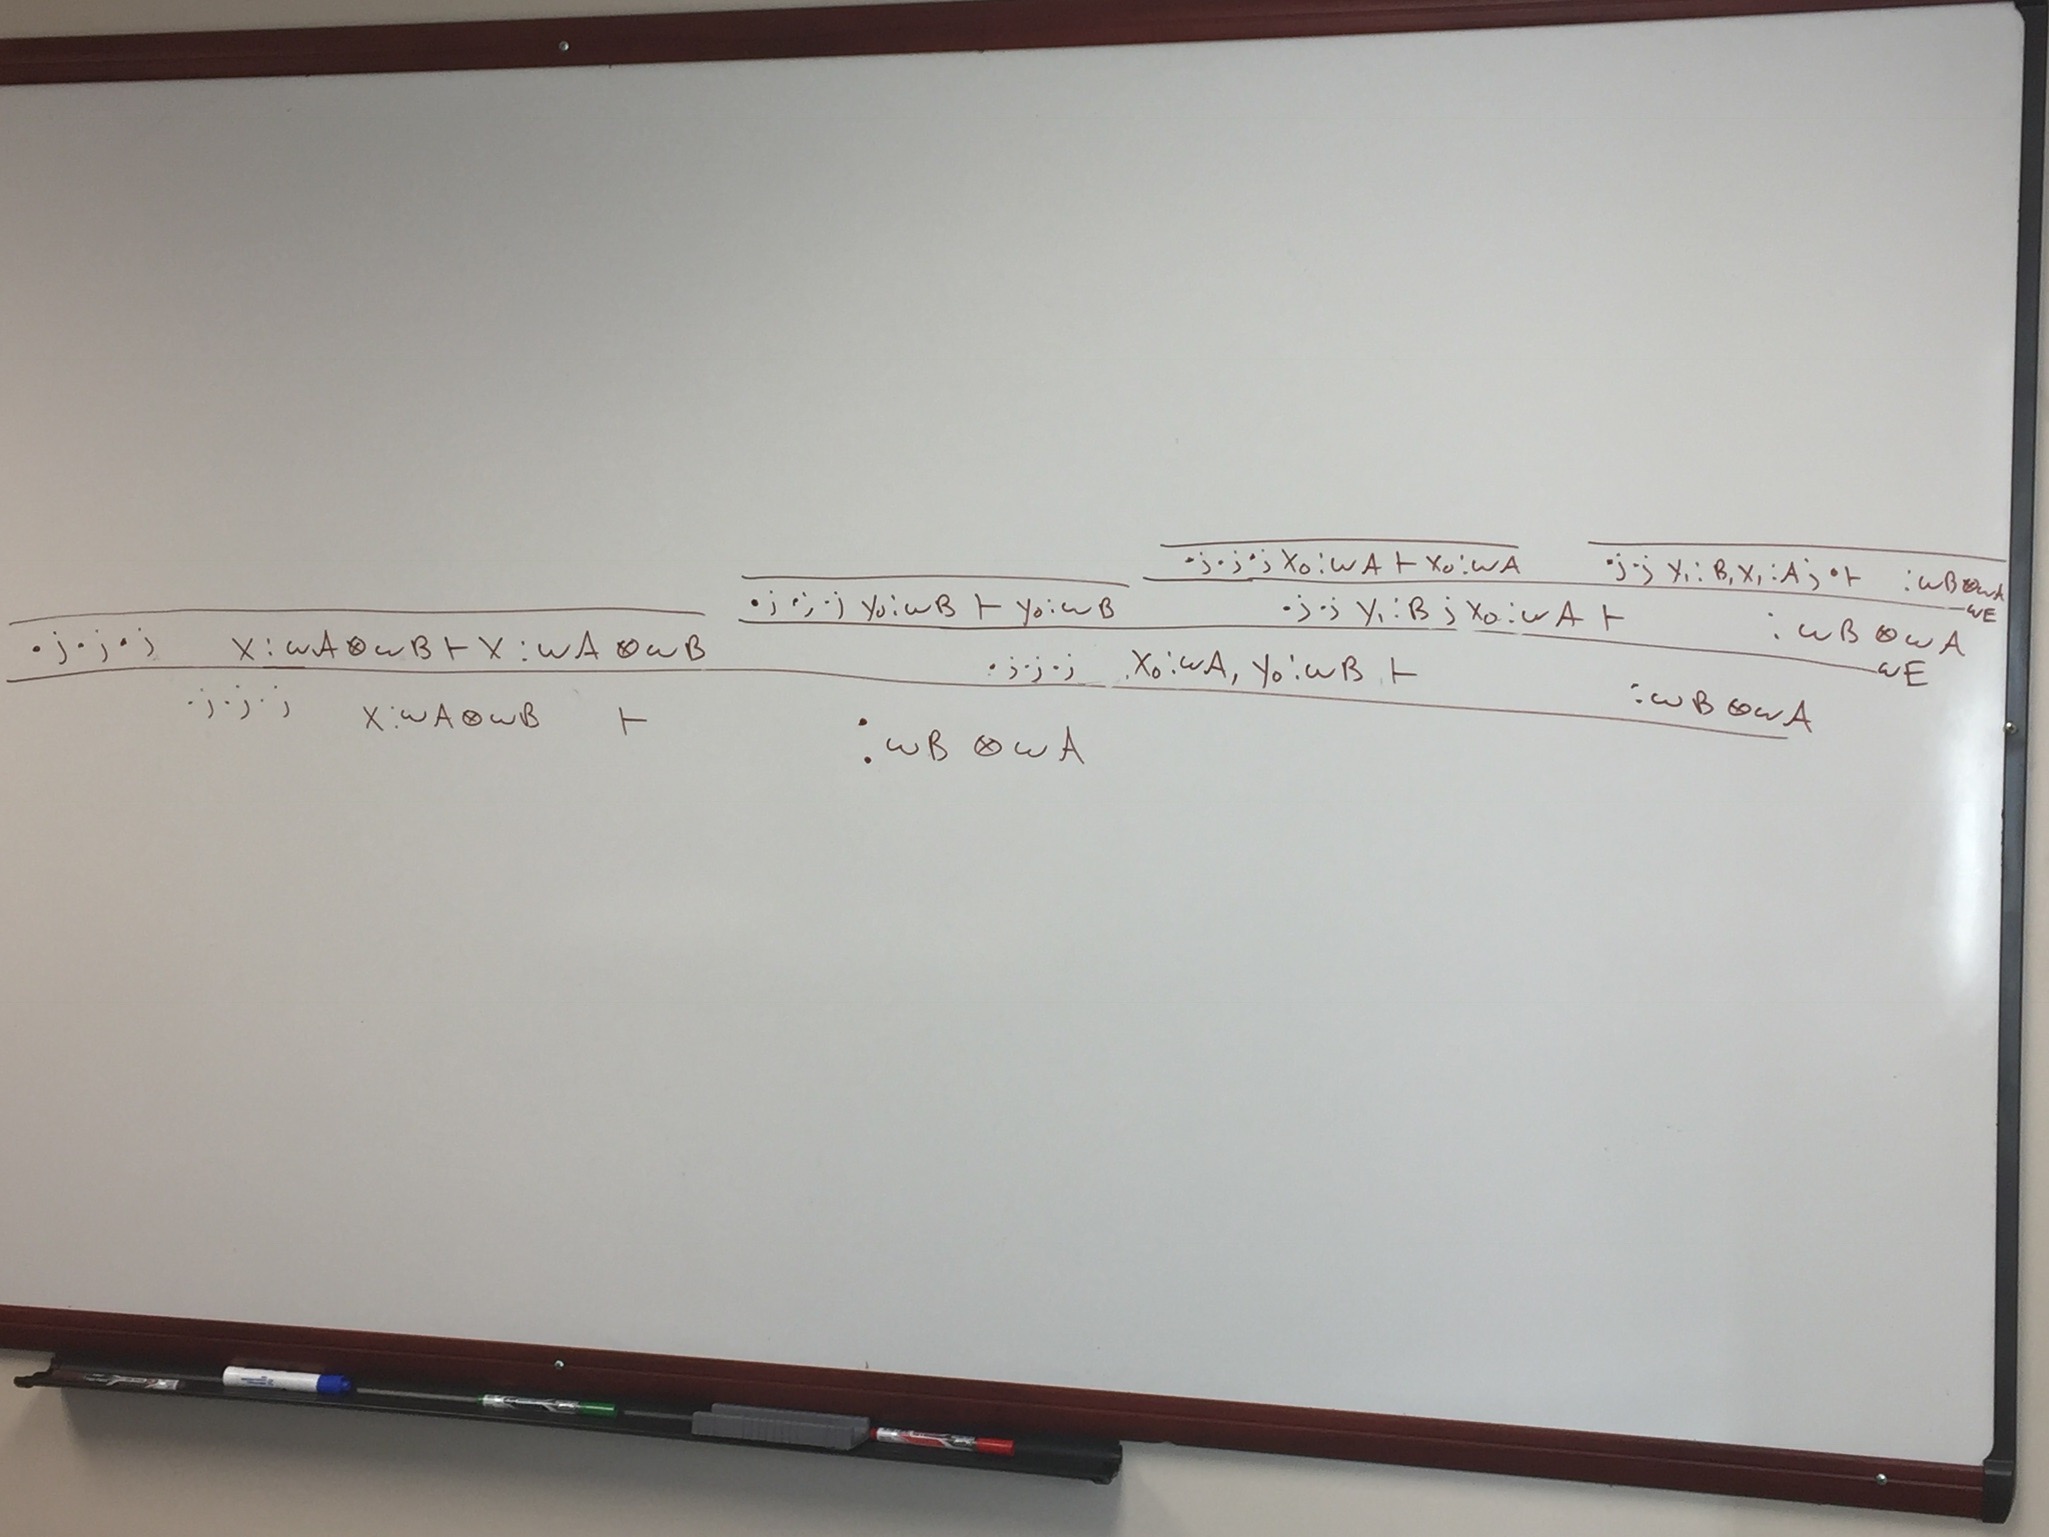 ·;·;·; x₀:ωA ⊢ x₀:ωA
·;·; y₁:B, x₁:A; · ⊢ :ωB⊗ωA
ωE
·;·;·; y₀:ωB ⊢ y₀:ωB
·;·; y₁:B; x₀:ωA ⊢ :ωB⊗ωA
ωE
·;·;·; x:ωA⊗ωB ⊢ x:ωA⊗ωB
·;·;·; x₀:ωA, y₀:ωB ⊢ :ωB⊗ωA
·;·;·; x:ωA⊗ωB ⊢ :ωB⊗ωA